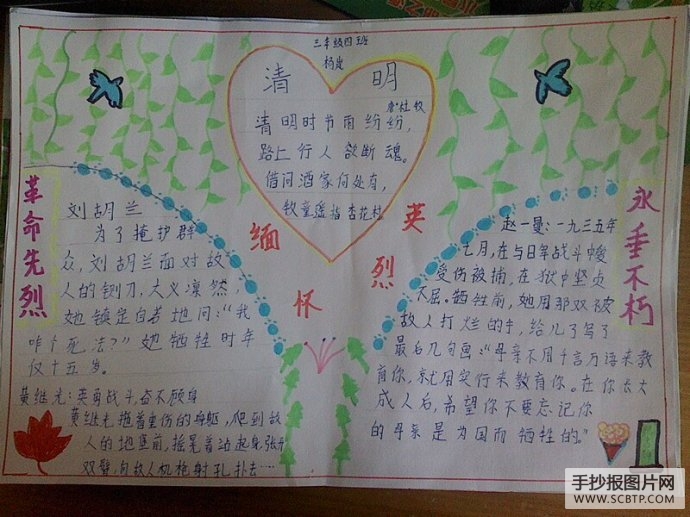 三年级四班
清 明
唐·杜牧
清明时节雨纷纷,
路上行人欲断魂。
借问酒家何处有,
牧童遥指杏花村
缅怀英烈
革命先烈
永垂不朽
刘胡兰
为了掩护群
众,刘胡兰面对敌
人的铡刀,大义凛然,
她镇定自若地问:“我
咋个死法?”她牺牲时年
仅十五岁。
黄继光:英勇战斗,奋不顾身
黄继光拖着重伤的身躯,爬到敌
人的地堡前,摇晃着站起身张开
双臂,向敌人机枪射孔扑去…
赵一曼:一九三五年
七月,在与日军战斗中
受伤被捕,在狱中坚贞
不屈。牺牲前,她用那双被
敌人打烂的手,给儿子写了
最后几句面:“母亲不用千言万语来教
育你,就用实行来教育你。在你长大
成人后,希望你不要忘记你
的母亲是为国而牺牲的。”
手抄报图片网
WWW.SCBTP.COM